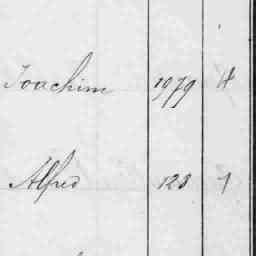 Joachim 1979
Alfred 123 1